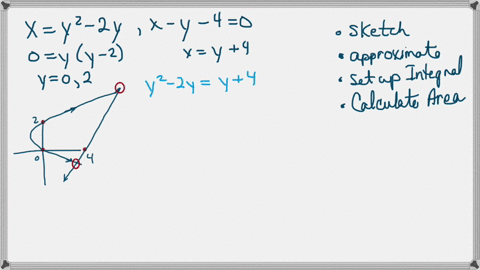 x = y² - 2y , x - y - 4 = 0
0 = y (y-2)
x = y + 4
y = 0, 2
y² - 2y = y + 4
2
0
4
• Sketch
• approximate
• Set up Integral
• Calculate Area